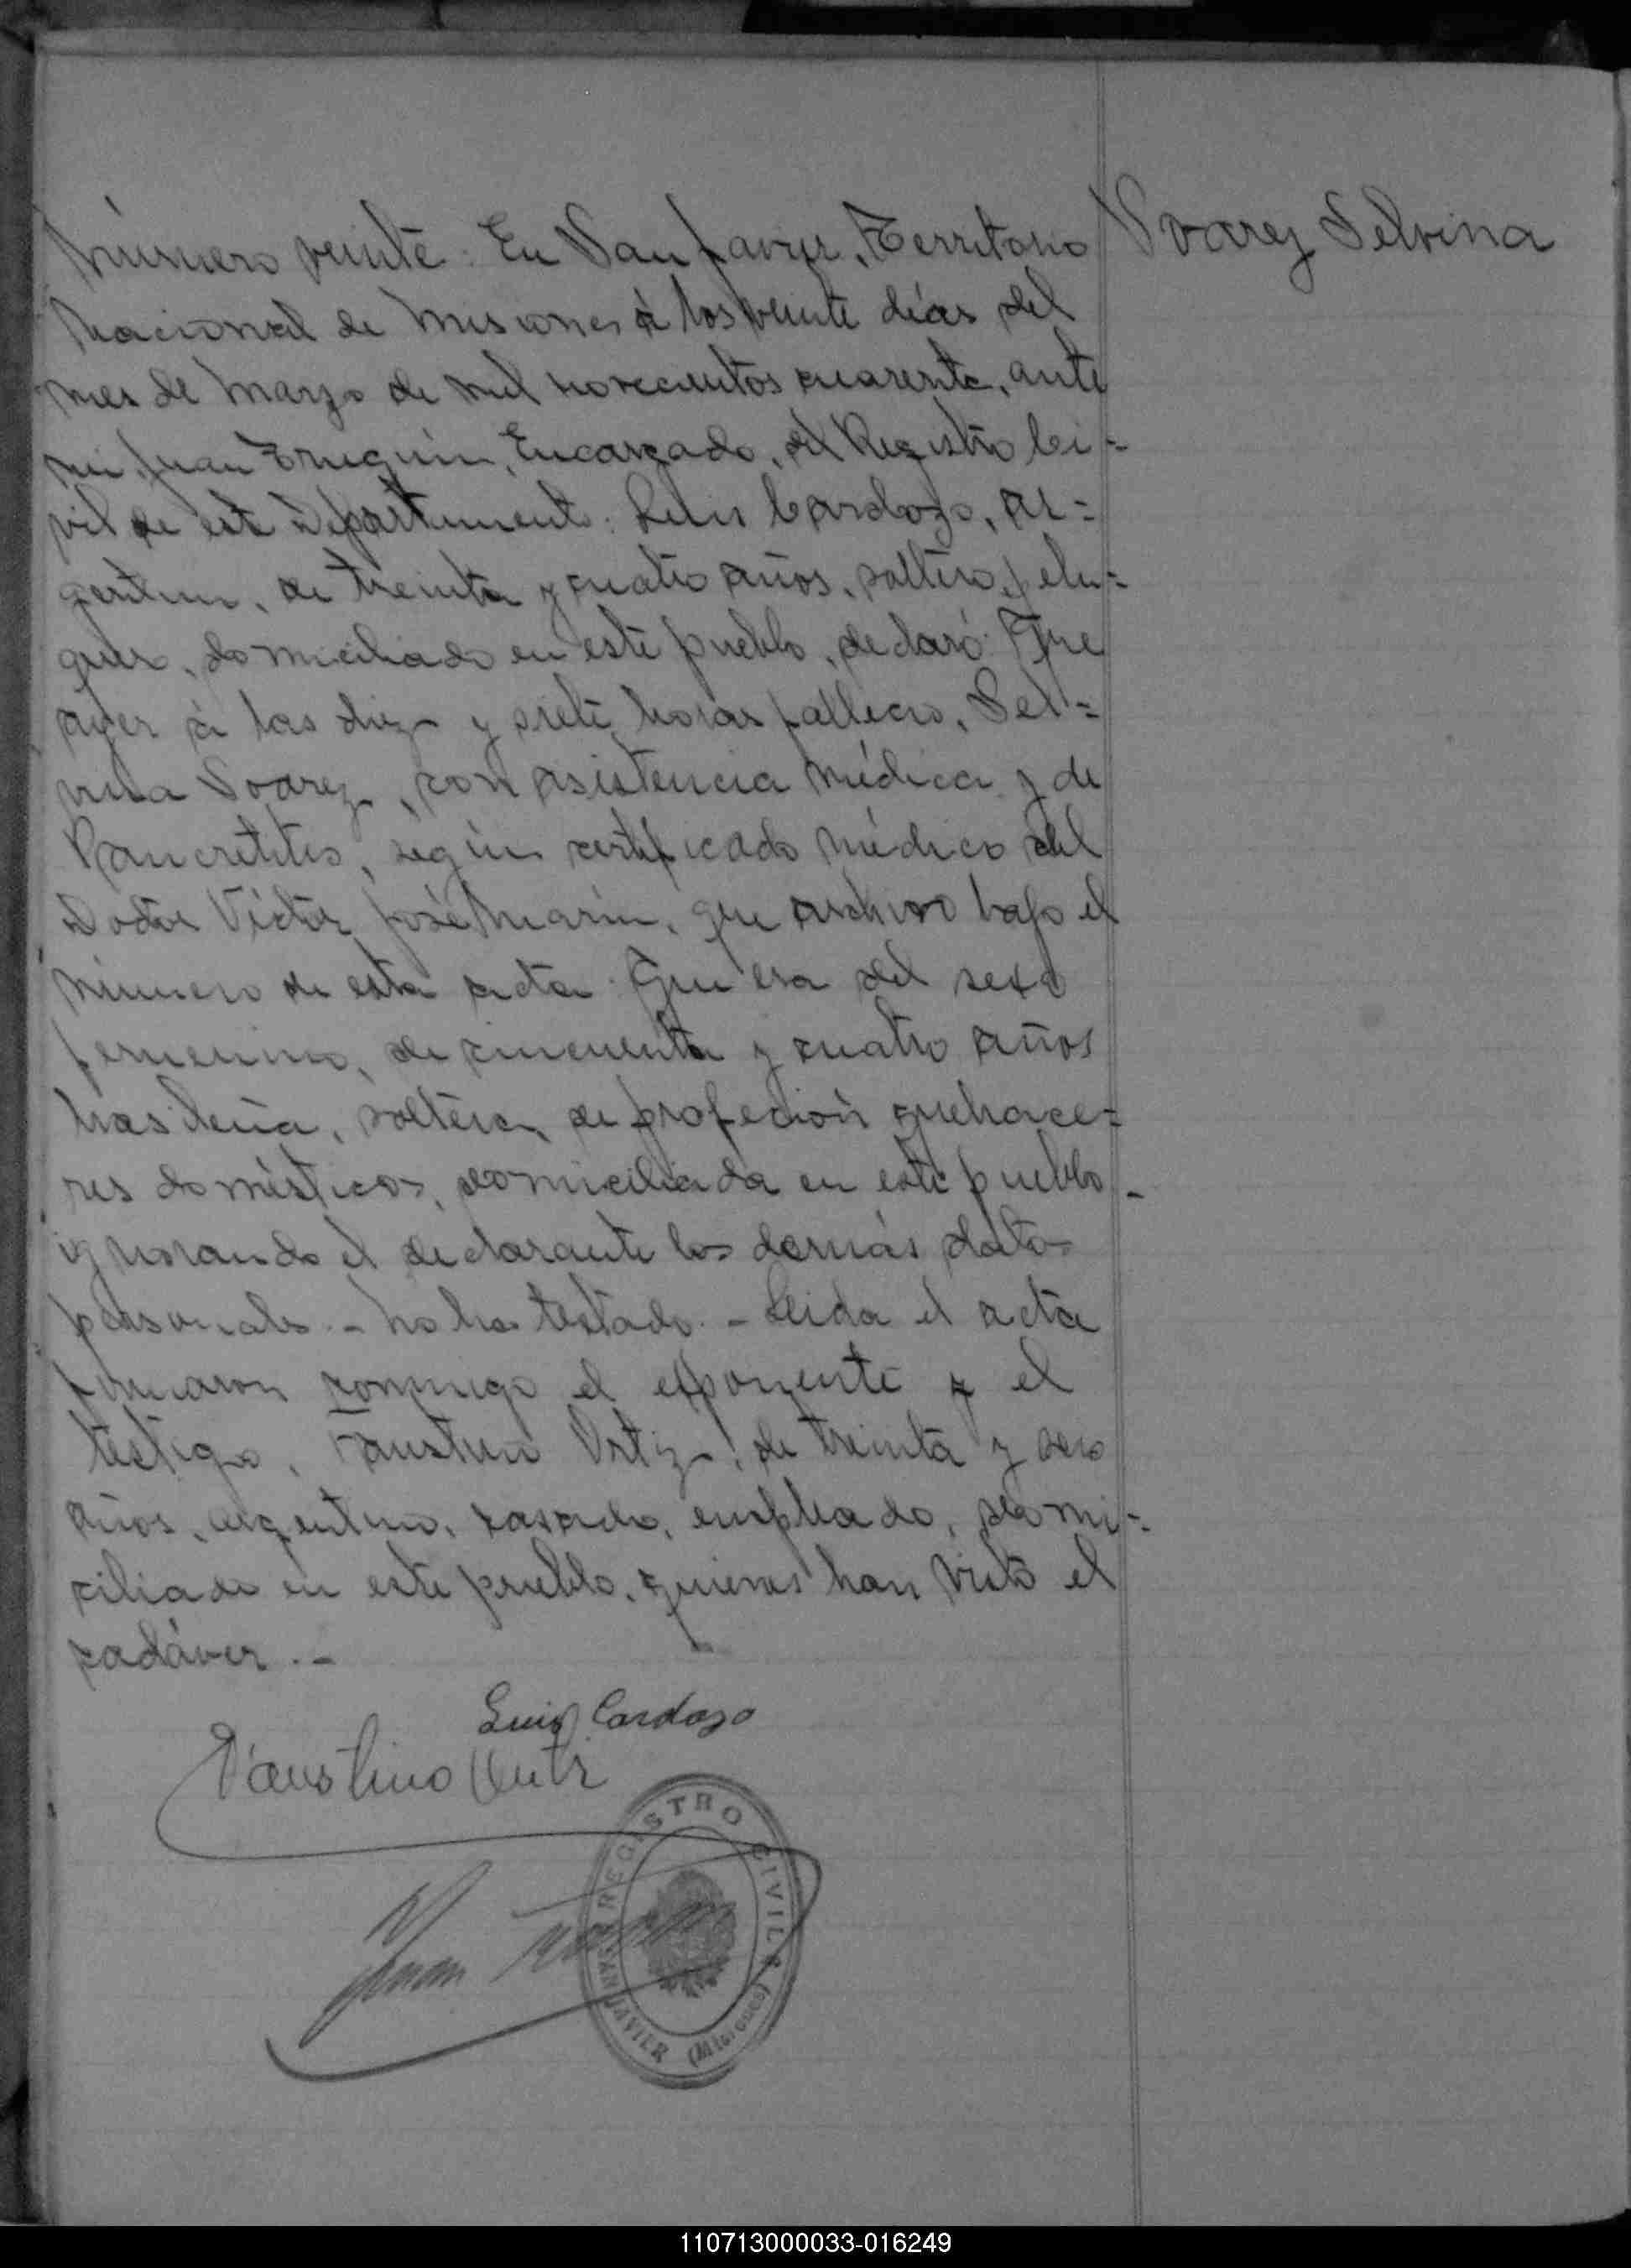 Número veinte: En San Javier, Territorio
Nacional de Misiones á los veinte días del
mes de Marzo de mil novecientos cuarenta, ante
mi Juan Truquin, Encargado, del Registro Ci=
vil de este Departamento: Luis Cardozo, ar=
gentino, de treinta y cuatro años, soltero, pelu=
quero, domiciliado en este pueblo, declaró: Que
ayer á las diez y siete horas fallecio, Sel=
vina Soarez, con asistencia médica y de
Pancretitis, según certificado médico del
Doctor Víctor José Marin, que archivo bajo el
número de esta acta. Que era del sexo
femenino, de cincuenta y cuatro años
brasileña, soltera, de profecion quehace=
res domésticos, domiciliada en este pueblo -
ignorando el declarante los demás datos
personales. - No ha testado. - Leida el acta
firmaron conmigo el exponente y el
testigo, Faustino Ortiz, de treinta y seis
años, argentino, casado, empleado, domi-
ciliado en este pueblo, quienes han visto el
cadáver. -
Soarez Selvina
Luis Cardozo
Faustino Ortiz
Juan
REGISTRO CIVIL
SAN JAVIER (Misiones)
110713000033-016249